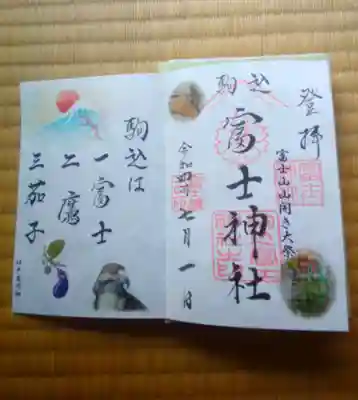 登拝
富士山山開き大祭
駒込
富士神社
令和四年七月一日
駒込は
一富士
二鷹
三茄子